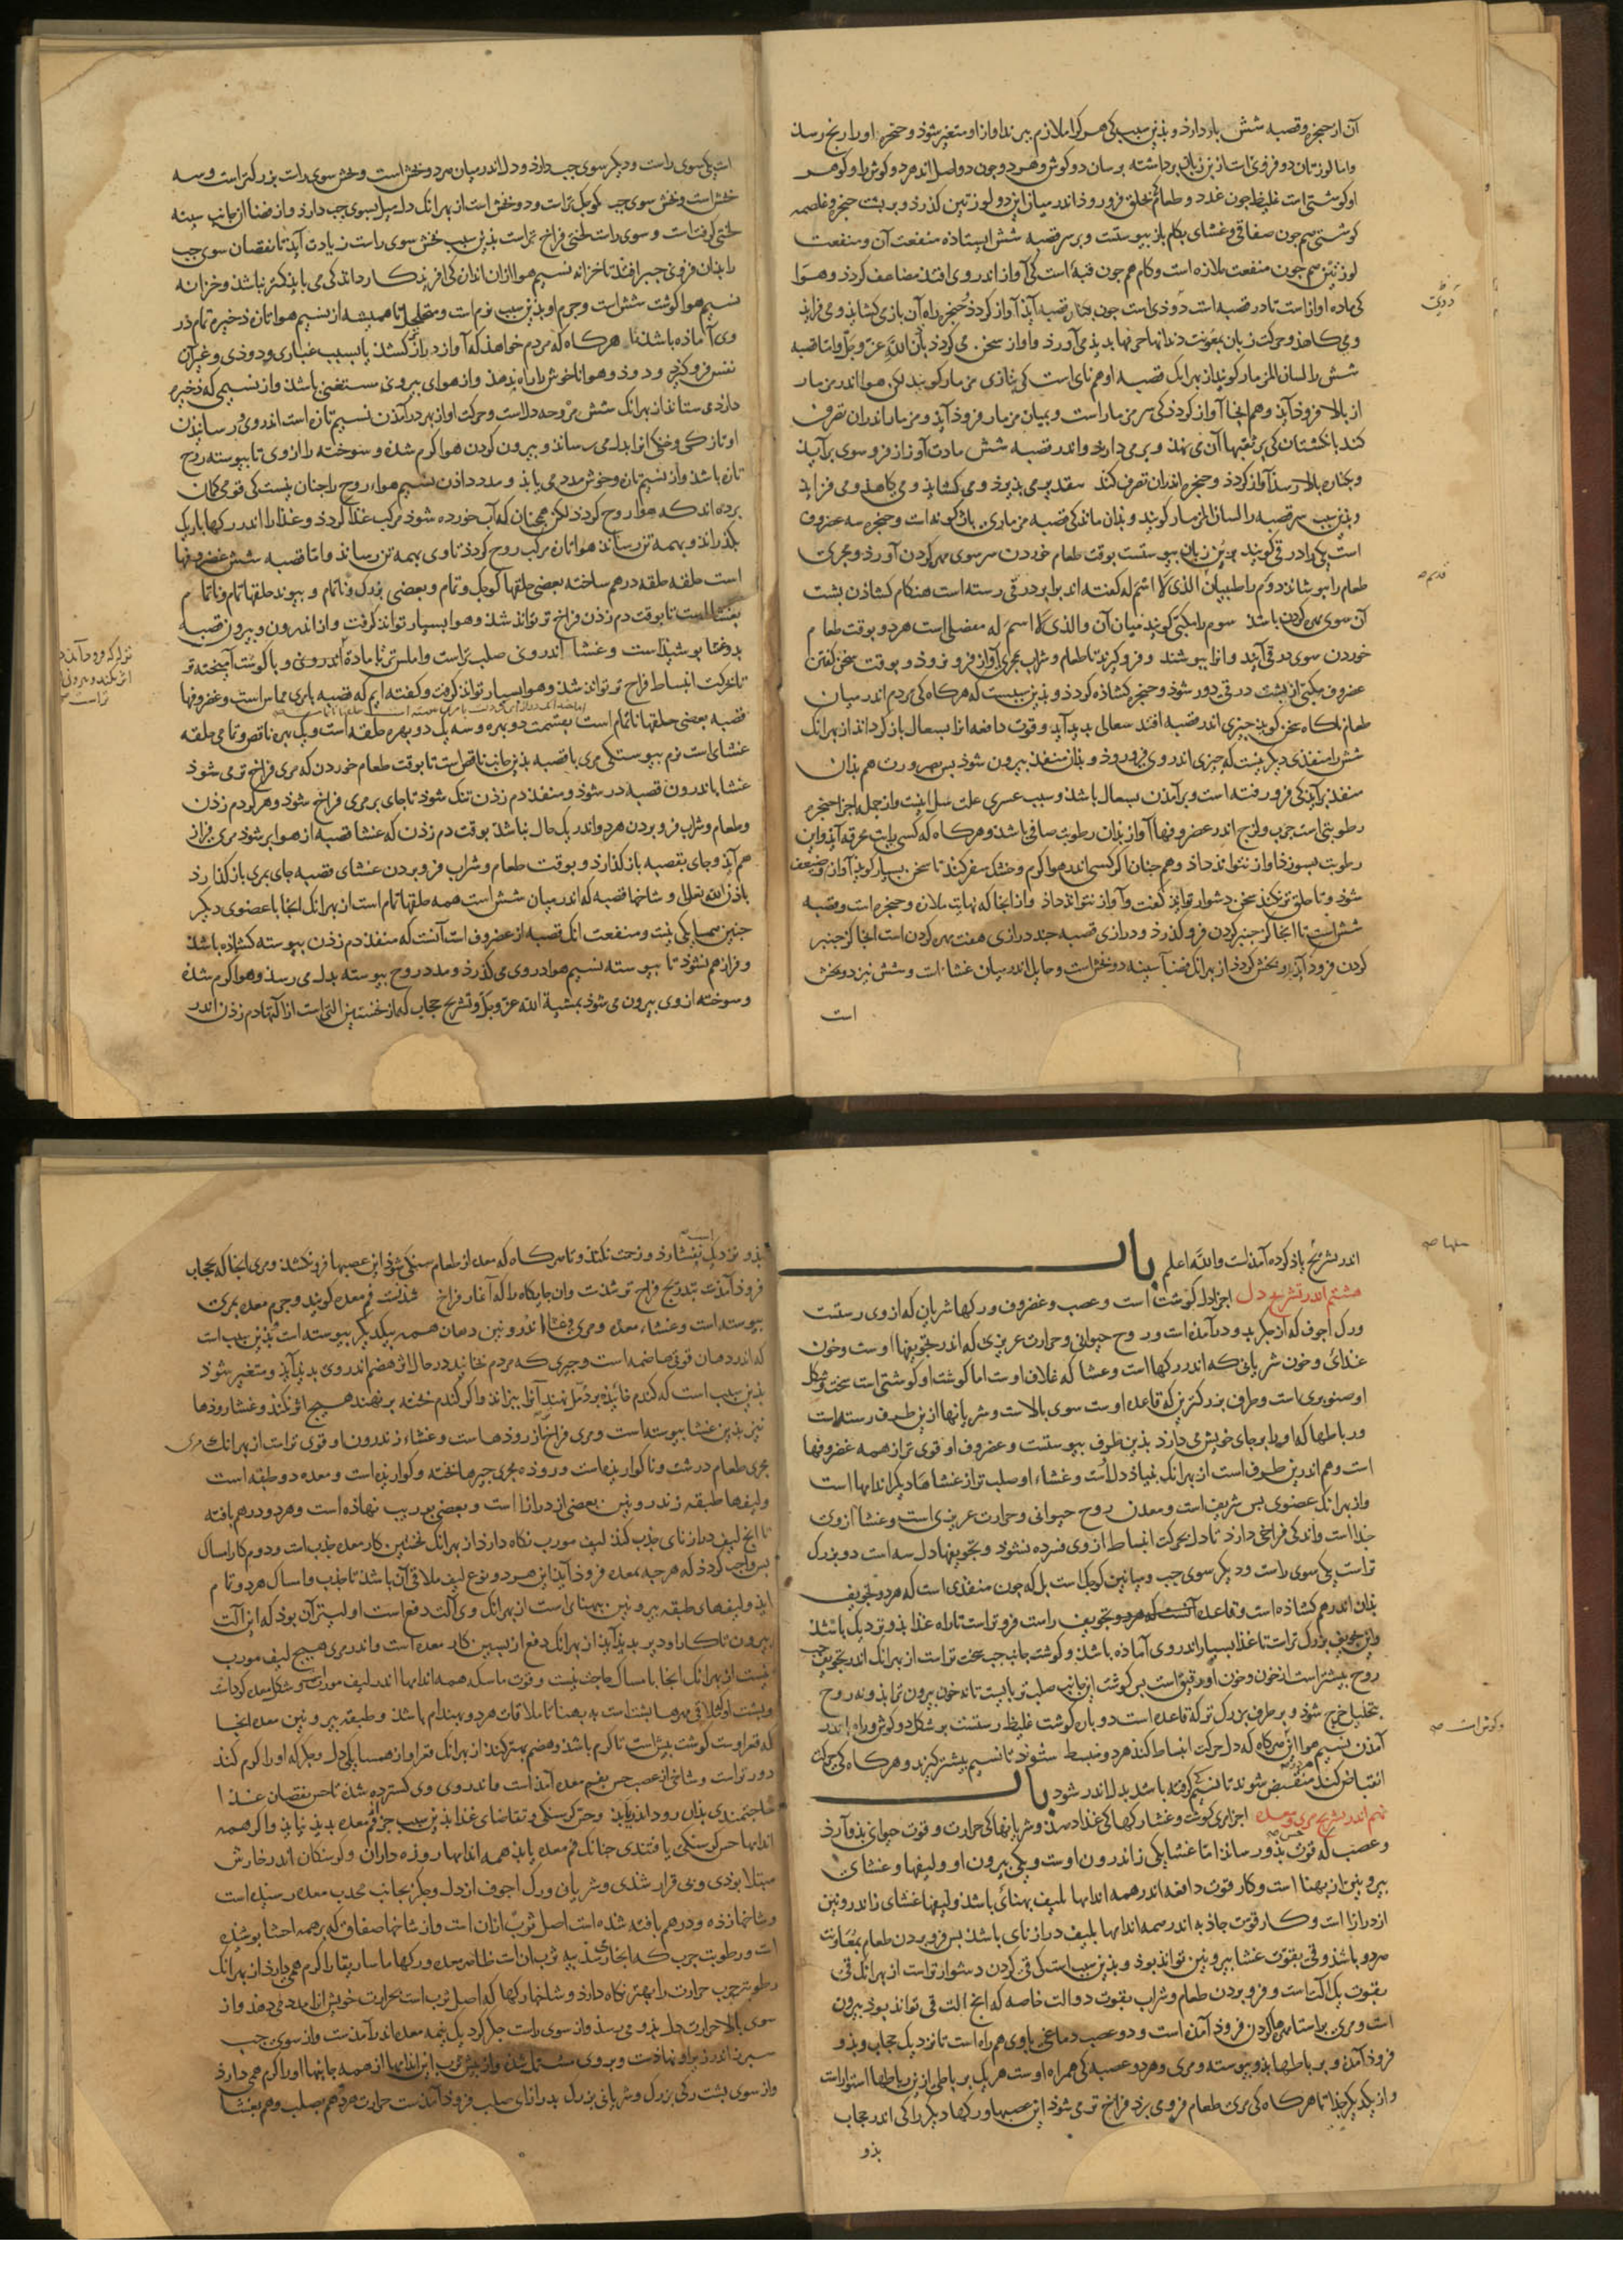 آن از حنجره و قصبه شش باز دارذ و بذین سبب کی هر کرا ملازه ببرند اواز او متغیر شوذ و حنجره او را رنج رسذ
واما لوزتان دو فزونی است از بن زبان برداشته بر سان دو کوش و هر دو جون دو اصل اند هر دو کوش را و کوهر
او کوشتی است غلیظ جون غدد و طعام بحلق فرو روذ اندر میان این دو لوزتین کذرذ و بر بشت حنجره و غلصمه
کوشتی هم جون صفاقی و غشای بکام باز بیوستست و بر سر قصبه شش ایستاذه منفعت آن و منفعت
لوزتین هم جون منفعت ملازه است و کام هم جون قبه است کی آواز اندر وی افتذ مضاعف کردذ و هوا
کی ماده اواز است تا در قصبه است دوذی است جون بکنار قصبه آیذ آواز کردذ حنجره راه آن باز می کشایذ و می فزایذ
و می کاهذ و حرکت زبان بمعونت دندانها حرفها بدیذ می آورذ و اواز سخن می کردذ بأذن الله عز و جل و اما قصبه
شش را لسان المزمار کویند از بهر انک قصبه او هم نای است کی بتازی مزمار کویند لکن هوا اندر مزمار
از بالا فروذ آیذ و هم انجا آواز کردذ کی سر مزمار است و بمیان مزمار فروذ آیذ و مزمار اندران تصرف
کند بانکشتان کی بر ثقبها آن می نهذ و بر می دارذ و اندر قصبه شش مادت آواز از فروسوی بر آیذ
و بکناره بالا رسذ آواز کردذ و حنجره اندران تصرف کند بقدر می بذیرذ و می کشایذ و می کاهذ و می فزایذ
و بذین سبب سر قصبه را لسان المزمار کویند و بذان ماند کی قصبه مزماری باشکونه است و حنجره سه غضروف
است یکی را درقی کویند بر بن زبان بیوستست بوقت طعام خوردن سر سوی مهره کردن آورذ و مجری
طعام را بپوشاند و دوم را طبیبان الذی لا اسم له کفته اند برابر درقی رسته است هنکام کشاذن بشت
آن سوی مهره کردن باشذ سوم را مکبی کویند میان آن و الذی لا اسم له مفصلی است هر دو بوقت طعام
خوردن سوی درقی آیند و انرا بپوشند و فرو کیرند تا طعام و شراب بمجری آواز فرو نروذ و بوقت سخن کفتن
غضروف مکبی از بشت درقی دور شوذ و حنجره کشاذه کردذ و بذین سبب است که هرکاه کی مردم اندر میان
طعام ناکاه سخن کویذ جیزی اندر قصبه افتد سعالی بدید آیذ و قوت دافعه انرا بسعال باز کرداند از بهر انک
شش را منفذی دیکر نیست که جیزی اندر وی فرو روذ و بذان منفذ بیرون شوذ بس بضرورت هم بذان
منفذ بر آیذ کی فرو رفته است و بر آمدن بسعال باشذ و سبب عسری علت سل اینست و از جمله اجزا حنجره
رطوبتی است جرب و لزج اندر غضروفها آواز بذان رطوبت صافی باشذ و هرکاه که کسی را تب محرقه آیذ و این
رطوبت بسوزذ اواز نتواند داذ و همجنان اکر کسی اندر هوا کرم و خشک سفر کند تا سخن بسیار کویذ آواز او ضعیف
شوذ و تا حلق تر نکند سخن دشوار تواند کفت و آواز نتواند داذ و از انجا که نهایت ملازه و حنجره است و قصبه
شش است تا انجا کی جنبر کردن فرو کذرذ و درازی قصبه جند درازی هفت مهره کردن است انجا کز جنبر
کردن فروذ آیذ دو بخش کردذ از بهر انک فضاء سینه دو بخش است و حایل اندر میان غشا است و شش نیز دو بخش
است
است یکی سوی راست و دیکر سوی جب دارذ و دل اندر میان هر دو بخش است و بخش سوی راست بزرکتر است و سه
بخش است و بخش سوی جب کوجکتر است و دو بخش است از بهر انک دل میل بسوی جب دارذ و از فضاء جانب سینه
لختی کرفت است و سوی راست لختی فراخ تر است بذین سبب بخش سوی راست زیادت آیذ تا نقصان سوی جب
را بذان فزونی جبر افتد تا خزانه نسیم هوا از ان اندازه کی افریذکار داند کی می بایذ کمتر نباشذ و خزانه
نسیم هوا کوشت شش است و جرم او بذین سبب نرم است و متخلخل تا همیشه از نسیم هوا تازه ذخیره تمام در
وی آماذه باشذ تا هرکاه که مردم خواهذ که آواز دراز کشذ یا بسبب غباری و دوذی و غیر آن
نفس فرو کیرذ و دوذ و هوا ناخوش را راه ندهذ و از هوای بیرونی مستغنی باشذ و از نسیمی که ذخیره
دارذ می ستاند از بهر انک شش مروحه دل است و حرکت او از بهر در آمذن نسیم تازه است اندر وی و رسانیذن
او تازکی و خنکی انرا بدل می رساند و بیرون کردن هوا کرم شده و سوخته را از وی تا بیوسته روح
تازه باشذ و از نسیم تازه و خوش مدد می یابذ و مدد داذن نسیم هواء روح را جنان نیست کی قومی کمان
برده اند که هوا روح کردذ لکن همجنان که آب خورده شوذ مرکب غذا کردذ و غذا را اندر رکها باریک
بکذراند و بهمه تن رساند هوا تازه مرکب روح کردذ تا وی بهمه تن رساند و اما قصبه شش غضروفها
است حلقه حلقه درهم ساخته بعضی حلقها کوجک و تمام و بعضی بزرک و ناتمام و بیوند حلقها تمام و ناتمام
بغشا است تا بوقت دم زذن فراخ تر تواند شذ و هوا بسیار تواند کرفت و از اندرون و بیرون قصبه
بدو غشا بوشیذه است و غشا اندرونی صلب تر است و املس تر تا ماده اندرونی و با کوشت آمیخته تر
تا بحرکت انبساط فراخ تر تواند شذ و هوا بسیار تواند کرفت و کفته ایم که قصبه با مری مماس است و غضروفها
قصبه بعضی حلقها ناتمام است بقسمت دو بهره و سه یک دو بهره حلقه است و یک بهره ناقص و تمامی حلقه
غشای است نرم بیوستکی مری با قصبه بذین جانب ناقص است تا بوقت طعام خوردن که مری فراخ تر می شوذ
غشا باندرون قصبه در شوذ و منفذ دم زذن تنک شوذ تا جای بر مری فراخ شوذ و هر بار دم زذن
و طعام و شراب فرو بردن هر دو اندر یک حال نباشذ بوقت دم زذن که غشا قصبه از هوا بر شوذ مری فراز
هم آیذ و جای بقصبه باز کذارذ و بوقت طعام و شراب فرو بردن غشای قصبه جای بمری باز کذارد
باذن الله تعالی و شاخها قصبه که اندر میان شش است همه حلقها تمام است از بهر انک انجا با عضوی دیکر
جنین همسایکی نیست و منفعت انک قصبه از غضروف است آنست که منفذ دم زذن بیوسته کشاذه باشذ
و فراز هم نشوذ تا بیوسته نسیم هوا در وی می کذرذ و مدد روح بیوسته بدل می رسذ و هوا کرم شده
و سوخته از وی بیرون می شوذ بمشیة الله عز و جل و تشریح حجاب که از نخستین التی است از التهاء دم زذن اندر
اندر تشریح یاذ کرده آمذست والله اعلم باب
هشتم اندر تشریح دل اجزاء دل کوشت است و عصب و غضروف و رکها شریان که از وی رستست
ورک اجوف که از جکر بدو در آمذه است و روح حیوانی و حرارت غریزی که اندر تجویفها اوست و خون
غذائی و خون شریانی که اندر رکها است و غشا که غلاف اوست اما کوشت او کوشتی است سخت و شکل
او صنوبری است و طرف بزرکترین که قاعده اوست سوی بالاست و شریانها ازین طرف رسته است
و رباطها که او را بر جای خویش می دارد بذین طرف بیوستست و غضروف او قوی تر از همه غضروفها
است و هم اندرین طرف است از بهر انک بنیاذ دل است و غشاء او صلب تر از غشاها دیکر اندامها است
و از بهر انک عضوی بس شریف است و معدن روح حیوانی و حرارت غریزی است و غشا از وی
جذا است و اندکی فراخی دارذ تا دل بحرکت انبساط از وی فسرده نشوذ و تجویفها دل سه است دو بزرک
تر است یکی سوی راست و دیکر سوی جب و میانین کوجک است بل که جون منفذی است که هر دو تجویف
بذان اندر هم کشاذه است و قاعده تجویف راست فروتر است تا راه غذا بذو نزدیک باشذ
واین تجویف بزرک تر است تا غذا بسیار اندر وی آماذه باشذ و کوشت جانب جب سخت تر است از بهر انک اندر تجویف جب
روح بیشتر است از خون و خون او رقیق است بس کوشت این جانب صلب تر بایست تا نه خون بیرون ترابذ و نه روح
بتحلیل خرج شوذ و بر طرف بزرک تر که قاعده است دو باره کوشت غلیظ رستست بر شکل دو کوش و راه اندر
آمذن نسیم هوا این هرکاه که دل حرکت انبساط کند هر دو منبسط شوند تا نسیم بیشتر کیرذ و هرکاه کی حرکت
انقباض کند منقبض شوند تا نسیم کرفته باشد بدل اندر شوذ باب
نهم اندر تشریح مری و معده اجزاء مری کوشت و غشا و رکهاکی غذا دهذ و شریانها کی حرارت و قوت حیوانی بذو آرد
و عصب که قوت حس بذو رساند اما غشا یکی ز اندرون اوست و یکی بیرون او و لیفها و غشای
بیرونین از بهنا است و کار قوت دافعه اندر همه اندامها بلیف بهنائی باشذ و لیفها غشای ز اندرونین
از درازا است و کار قوت جاذبه اندر همه اندامها بلیف درازنای باشذ بس فرو بردن طعام بمعاونت
هر دو باشذ و قی بقوت غشا بیرونین تواند بوذ و بذین سبب است کی قی کردن دشوارتر است از بهر انک قی
بقوت یک الت است و فرو بردن طعام و شراب بقوت دو الت خاصه که انج الت قی تواند بوذ بیرون
است و مری براستاء مهرها کردن فروذ آمذه است و دو عصب دماغی با وی همراه است تا نزدیک حجاب و بذو
فروذ آمذن و بر رباطها بذو بیوسته و مری و هر دو عصبه کی همراه اوست هر یک بر رباطی از رباطها استوار است
و از یکدیکر جذا تا هرکاه کی مری طعام فرو می برذ فراخ تر می شوذ این عصبها و رکها دیکر را کی اندر حجاب
بذو
بذو نزدیک است نفشارذ و زحمت نکند و تا هرکاه که معده از طعام سنکی شوذ این عصبها فرو نکشذ و مری انجا که بحجاب
فروذ آمذست بتدریج فراخ تر شذست وان جایکاه را که آغاز فراخ شذنست فم معده کویند و جرم معده بمری
بیوسته است و غشاء معده و مری و غشاء اندرونین دهان همه بیکدیکر بیوسته است و بذین سبب است
که اندر دهان قوتی هاضمه است و جیزی که مردم بخایند در حال اثر هضم اندر وی بدیذ آیذ و متغیر شوذ
بذین سبب است که کندم خائیذه بر دمل نهند آنرا ببزاند و اکر کندم بخته بر نهند هیج اثر نکند و غشا روذها
نیز بذین غشا بیوسته است و مری فراخ تر از روذها است و غشاء ز اندرون او قوی تر است از بهر انک مری
مجری طعام درشت و ناکواریذه است و روذه مجری جیزها بخته و کواریذه است و معده دو طبقه است
و لیفها طبقه ز اندرونین بعضی از درازا است و بعضی بوریب نهاذه است و هر دو درهم بافته
تا انج لیف درازنای جذب کند لیف مورب نکاه دارد از بهر انک نخستین کار معده جذب است و دوم کار امساک
بس واجب کردذ که هرجه بمعده فروذ آیذ این هر دو نوع لیف ملاقی آن باشذ تا جذب و امساک هر دو تمام
ایذ و لیفهای طبقه بیرونین بهنای است از بهر انک وی آلت دفع است اولیتر آن بوذ که این آلت
بیرون تا کار او دیر بدیذ آیذ از بهر انک دفع از بسین کار معده است و اندر مری هیج لیف مورب
نیست از بهر انک انجا بامساک حاجت نیست و قوت ماسکه همه اندامها اندر لیف مورب است و شکل معده کرد است
و بشت او کی ملاقی مهرها بشت است به بهنا تا ملاقات هر دو بهندام باشذ و طبقه بیرونین معده انجا
که قعر اوست کوشت بیش است تا کرم باشذ و هضم بهتر کند از بهر انک قعر او از همسایکی دل و جکر که او را کرم کند
دورتر است و شاخی از عصب حس بفم معده آمذه است و اندر وی کسترده شذه تا حس نقصان غذا
حاجتمندی بذان زود اندر یابذ و حس کرسنکی و تقاضای غذا بذین سبب جز فم معده بدیذ نیایذ و اکر همه
اندامها حس کرسنکی یافتندی جنانک فم معده یابذ همه اندامها روزه داران و کرسنکان اندر خارش
مبتلا بوذی و بی قرار شذی و شریان ورک اجوف از دل و جکر بجانب محدب معده رسیذه است
و شاخها زذه و درهم بافته شذه است اصل ثرب از ان است و از شاخها صفاق که بر همه احشا بوشیذه
است و رطوبت جرب که انجا بسته شذه بیه ثرب ان است ظاهر معده و رکها ماساریقا را کرم همی دارذ از بهر انک
رطوبت جرب حرارت را بهتر نکاه دارذ و شاخها رکها که اصل ثرب است بحرارت خویش انرا مدد می دهذ و از
سوی بالا حرارت دل بذو می رسذ و از سوی راست جکر کرد یک نیمه معده اندر آمذست و از سوی جب
سبرز اندر زیر او نهاذست و بر وی مشتمل شذه و از بیش ثرب این اندامها از همه جانبها او را کرم همی دارذ
و از سوی بشت رکی بزرک و شریانی بزرک بدرازنای صلب فروذ آمذست حرارت هر دو هم بصلب و هم بغشا